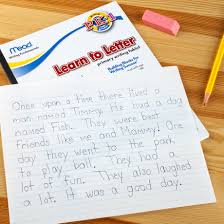 Mead
Learn to Letter
primary writing tablet
Once upon a time there lived a
man named Timmy. He had a dog
named Fish. They were best
friends like me and Mommy! One
day they went to the park
to play ball. They had a
lot of fun. They also laughed
a lot. It was a good day.